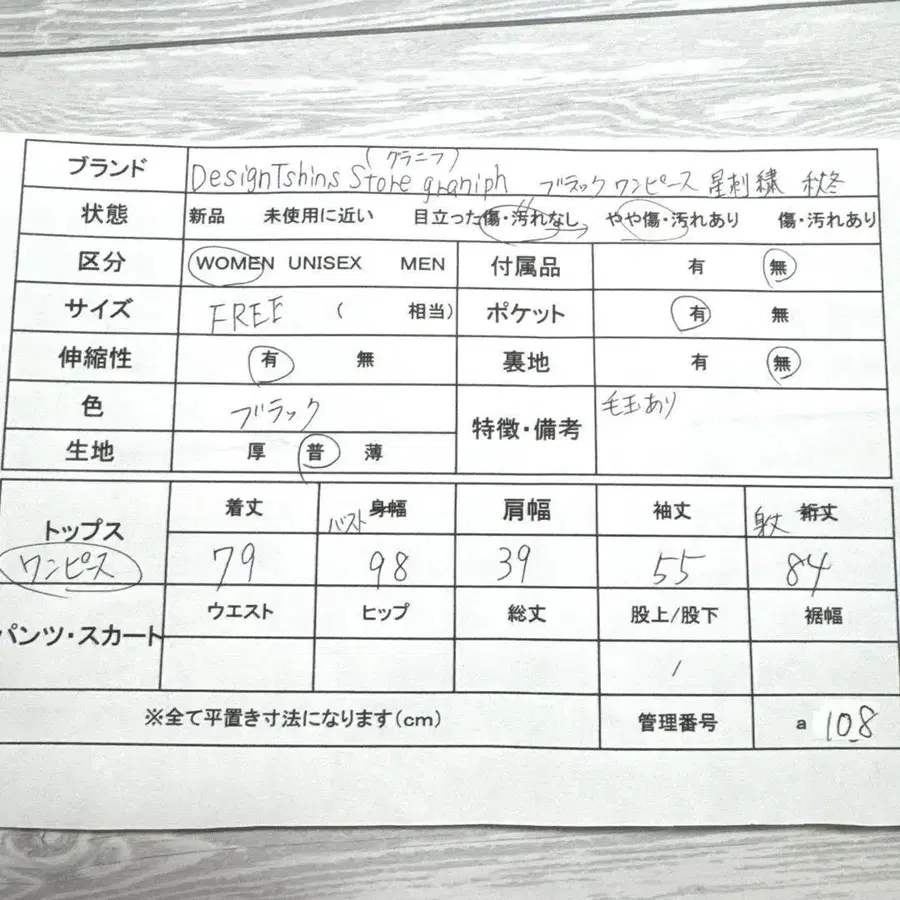 (グラニフ)
ブランド DesignTshins Store graniph ブラック ワンピース 星刺繍 秋冬
状態 新品 未使用に近い 目立った傷・汚れなし やや傷・汚れあり 傷・汚れあり
区分 WOMEN UNISEX MEN 付属品 有 無
サイズ FREE ( 相当) ポケット 有 無
伸縮性 有 無 裏地 有 無
色 ブラック 特徴・備考 毛玉あり
生地 厚 普 薄
トップス 着丈 バスト 身幅 肩幅 袖丈 裄丈
ワンピース 79 98 39 55 84
パンツ・スカート ウエスト ヒップ 総丈 股上/股下 裾幅
/
※全て平置き寸法になります(cm) 管理番号 a 108